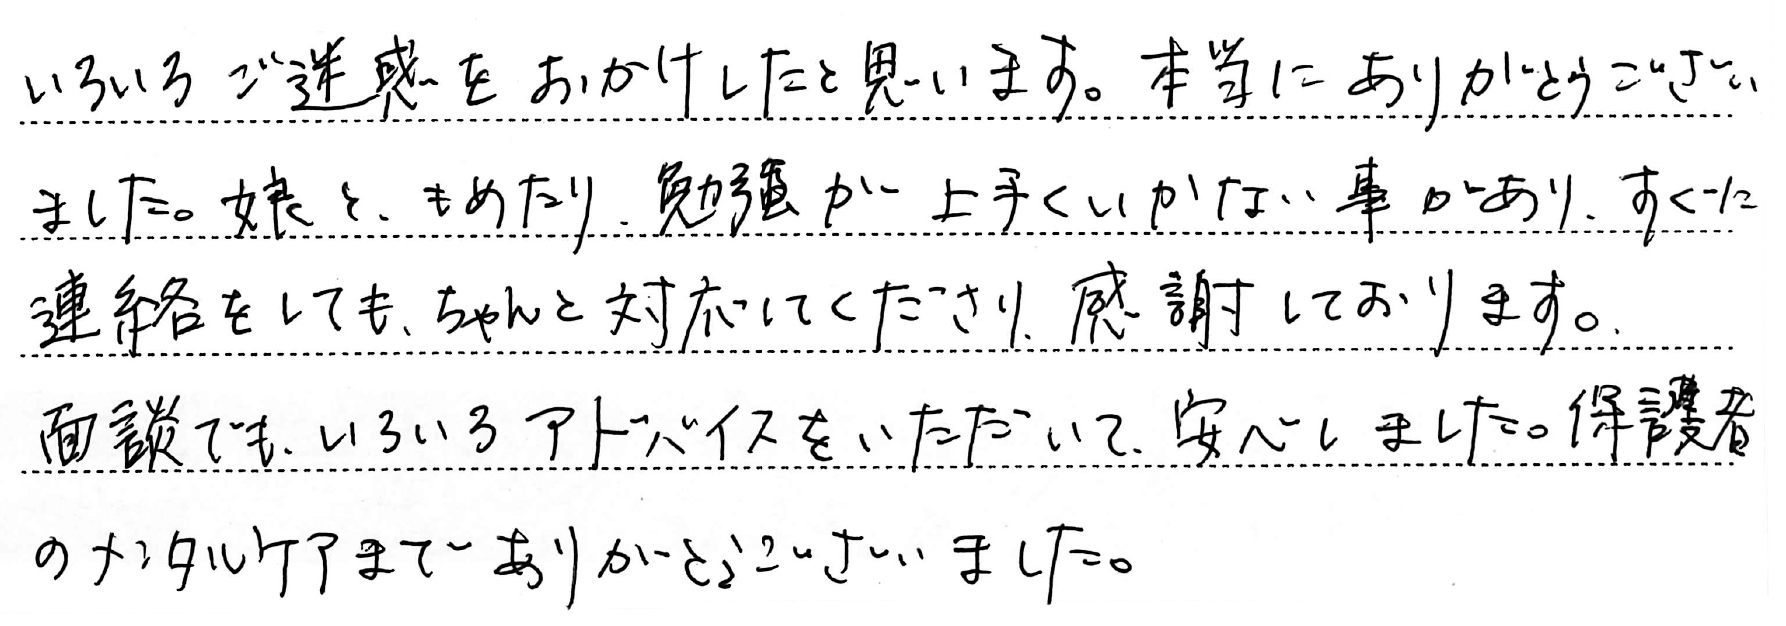 いろいろご迷惑をおかけしたと思います。本当にありがとうござい
ました。娘と、もめたり、勉強が上手くいかない事があり、すぐに
連絡をしても、ちゃんと対応してくださり、感謝しております。
面談でも、いろいろアドバイスをいただいて、安心しました。保護者
のメンタルケアまでありがとうございました。